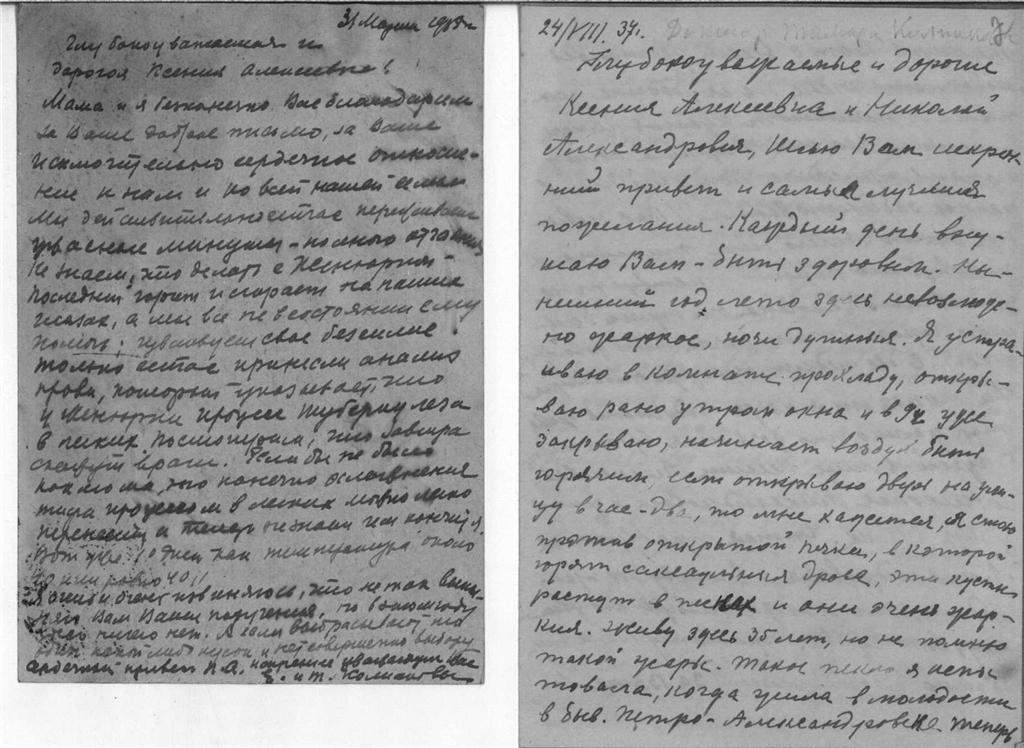 31 Марта
Глубокоуважаемая и
дорогая Ксения Алексеевна!
Мама и я бесконечно Вас благодарим
за Ваше доброе письмо, за Ваше
исключительно сердечное отноше-
ние к нам и ко всей нашей семье
Мы действительно сейчас переживаем
ужасные минуты – полного отчаяния
Не знаем, что делать с
последний горит и сгорает на наших
глазах, а мы все не в состоянии ему
помочь, чувствуем свое бессилие
только сейчас принесли анализ
крови, который указывает, что
у процесс туберкулеза
в легких посмотрим, что завтра
скажут врачи. Если бы не было
то конечно осложнения
тифа процессом в легких можно легко
перенести и теперь не знаем чем кончится
Вот уже дней как температура около
40 или ровно 40!!
Я очень и очень извиняюсь, что не так
Вам Ваши поручения, но в этом году
у нас ничего нет. А если выбрасывают, то
какой либо кусок и нет совершенно выбору
Сердечный привет Н.А. искренне уважающие Вас
и т. Колпаковы
24/VIII. 37г. Доктор Тамара Колпак
Глубокоуважаемые и дорогие
Ксения Алексеевна и Николай
Александрович, Шлю Вам искрен-
ний привет и самые лучшия
пожелания. Каждый день
Вам – быть здоровым. Ны-
нешний год лето здесь невозмож-
но жаркое, ночи душныя. Я устра-
иваю в комнате прохладу, откры-
ваю рано утром окна и в 9ч уже
закрываю, начинает воздух быть
горячим, если открываю дверь на ули-
цу в час-два, то мне кажется, я стою
против открытой печки, в которой
горят саксаульныя дрова, эти кусты
растут в песках и они очень жар-
кия. Живу здесь 35 лет, но не помню
такой жары. Такое пекло я испы-
товала, когда жила в молодости
в быв. Петро-Александровске теперь